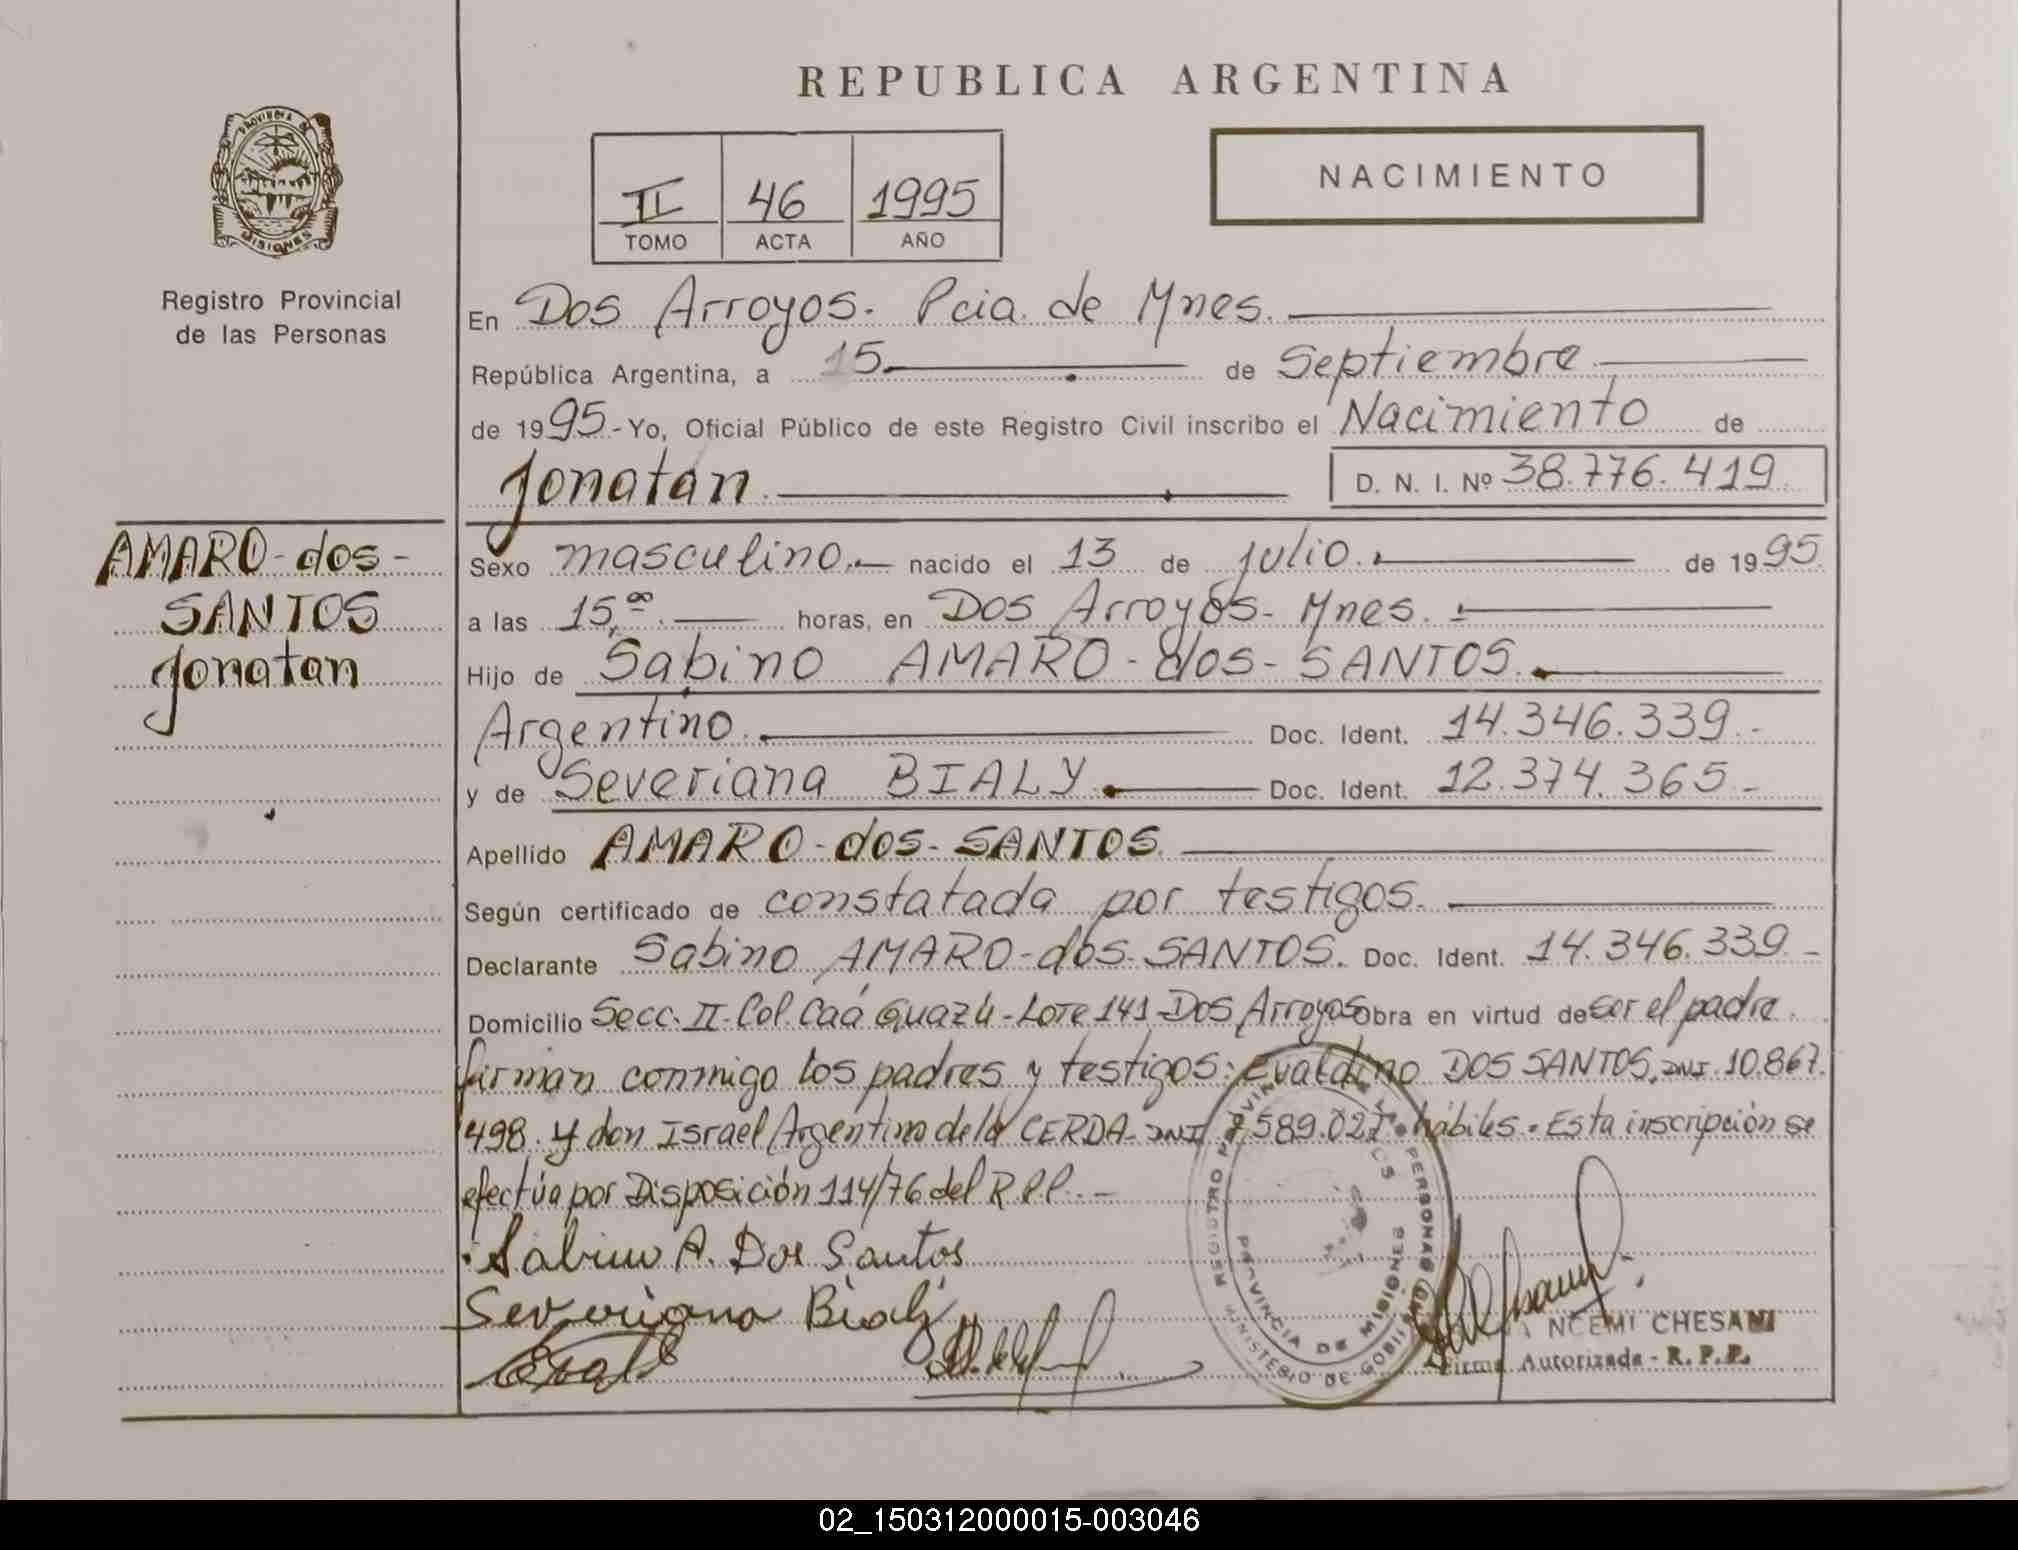 REPUBLICA ARGENTINA
NACIMIENTO
II 46 1995
TOMO ACTA AÑO
PROVINCIA DE
MISIONES
Registro Provincial
de las Personas
En Dos Arroyos. Pcia. de Mnes.
República Argentina, a 15 de Septiembre
de 1995.- Yo, Oficial Público de este Registro Civil inscribo el Nacimiento de
Jonatan. D. N. I. Nº 38.776.419
AMARO-dos-
SANTOS
Jonatan
Sexo masculino.- nacido el 13 de julio. de 1995.
a las 15,00 . horas, en Dos Arroyos- Mnes.
Hijo de Sabino AMARO-dos-SANTOS.
Argentino. Doc. Ident. 14.346.339.-
y de Severiana BIALY. Doc. Ident. 12.374.365.-
Apellido AMARO-dos-SANTOS.
Según certificado de constatada por testigos.
Declarante Sabino AMARO-dos-SANTOS. Doc. Ident. 14.346.339.-
Domicilio Secc. II-Col. Caá Guazú-Lote 141-Dos Arroyos Obra en virtud de ser el padre.
firman conmigo los padres y testigos: Evaldino DOS SANTOS, DNI. 10.867.
498. y don Israel Argentino de la CERDA- DNI 7.589.027. hábiles. Esta inscripción se
efectúa por Disposición 114/76 del R.P.P. -
Sabino A. Dos Santos
Severiana Bialy
PROVINCIA DE MISIONES
NOEMI CHESANI
Firma Autorizada - R. P. P.
02_150312000015-003046